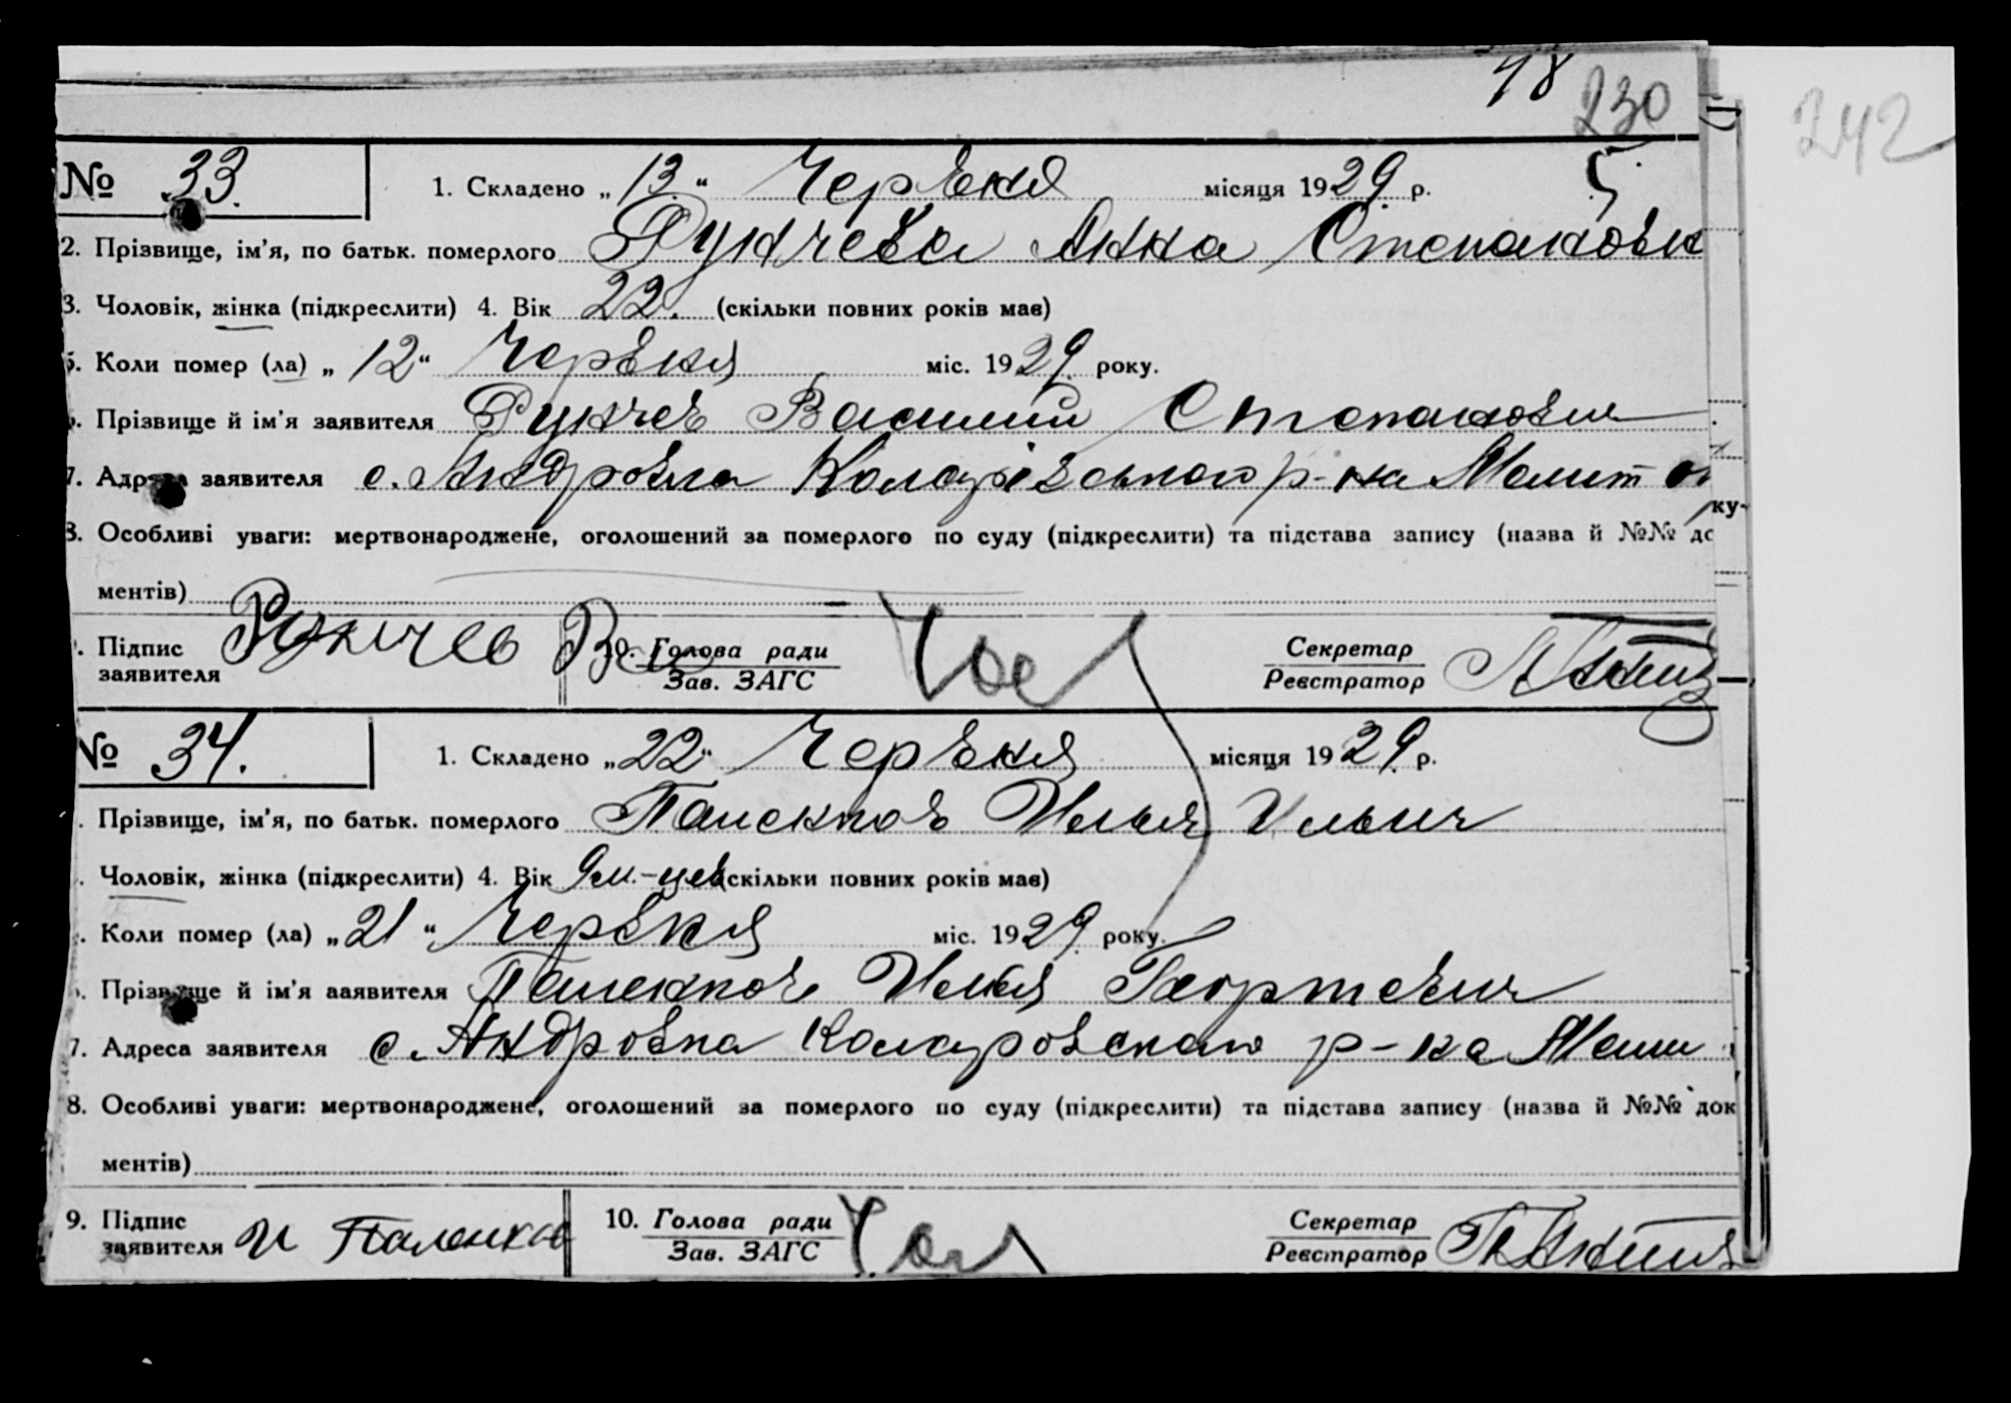 98 230
242
№ 33. 1. Складено „13“ Червня місяця 1929 р. 5
2. Прізвище, ім’я, по батьк. померлого Рункчева Анна Степановн
3. Чоловік, жінка (підкреслити) 4. Вік 22. (скільки повних років має)
5. Коли помер (ла) „12“ Червня міс. 1929 року.
Прізвище й ім’я заявителя Василий Степанович
7. Адреса заявителя с. Андровка Коларівського р-на Мелит
ку-
8. Особливі уваги: мертвонароджене, оголошений за померлого по суду (підкреслити) та підстава запису (назва й №№ до
ментів)
Підпис заявителя 10. Голова ради Зав. ЗАГС Секретар Реєстратор
№ 34. 1. Складено „22“ Червня місяця 1929 р.
Прізвище, ім’я, по батьк. померлого Илья Ильич
Чоловік, жінка (підкреслити) 4. Вік 9 м.-цев (скільки повних років має)
Коли помер (ла) „21“ Червня міс. 1929 року.
Прізвище й ім’я заявителя Илья Георгиевич
7. Адреса заявителя с. Андровка Коларовского р-на Мели
8. Особливі уваги: мертвонароджене, оголошений за померлого по суду (підкреслити) та підстава запису (назва й №№ док
ментів)
9. Підпис заявителя И 10. Голова ради Зав. ЗАГС Секретар Реєстратор